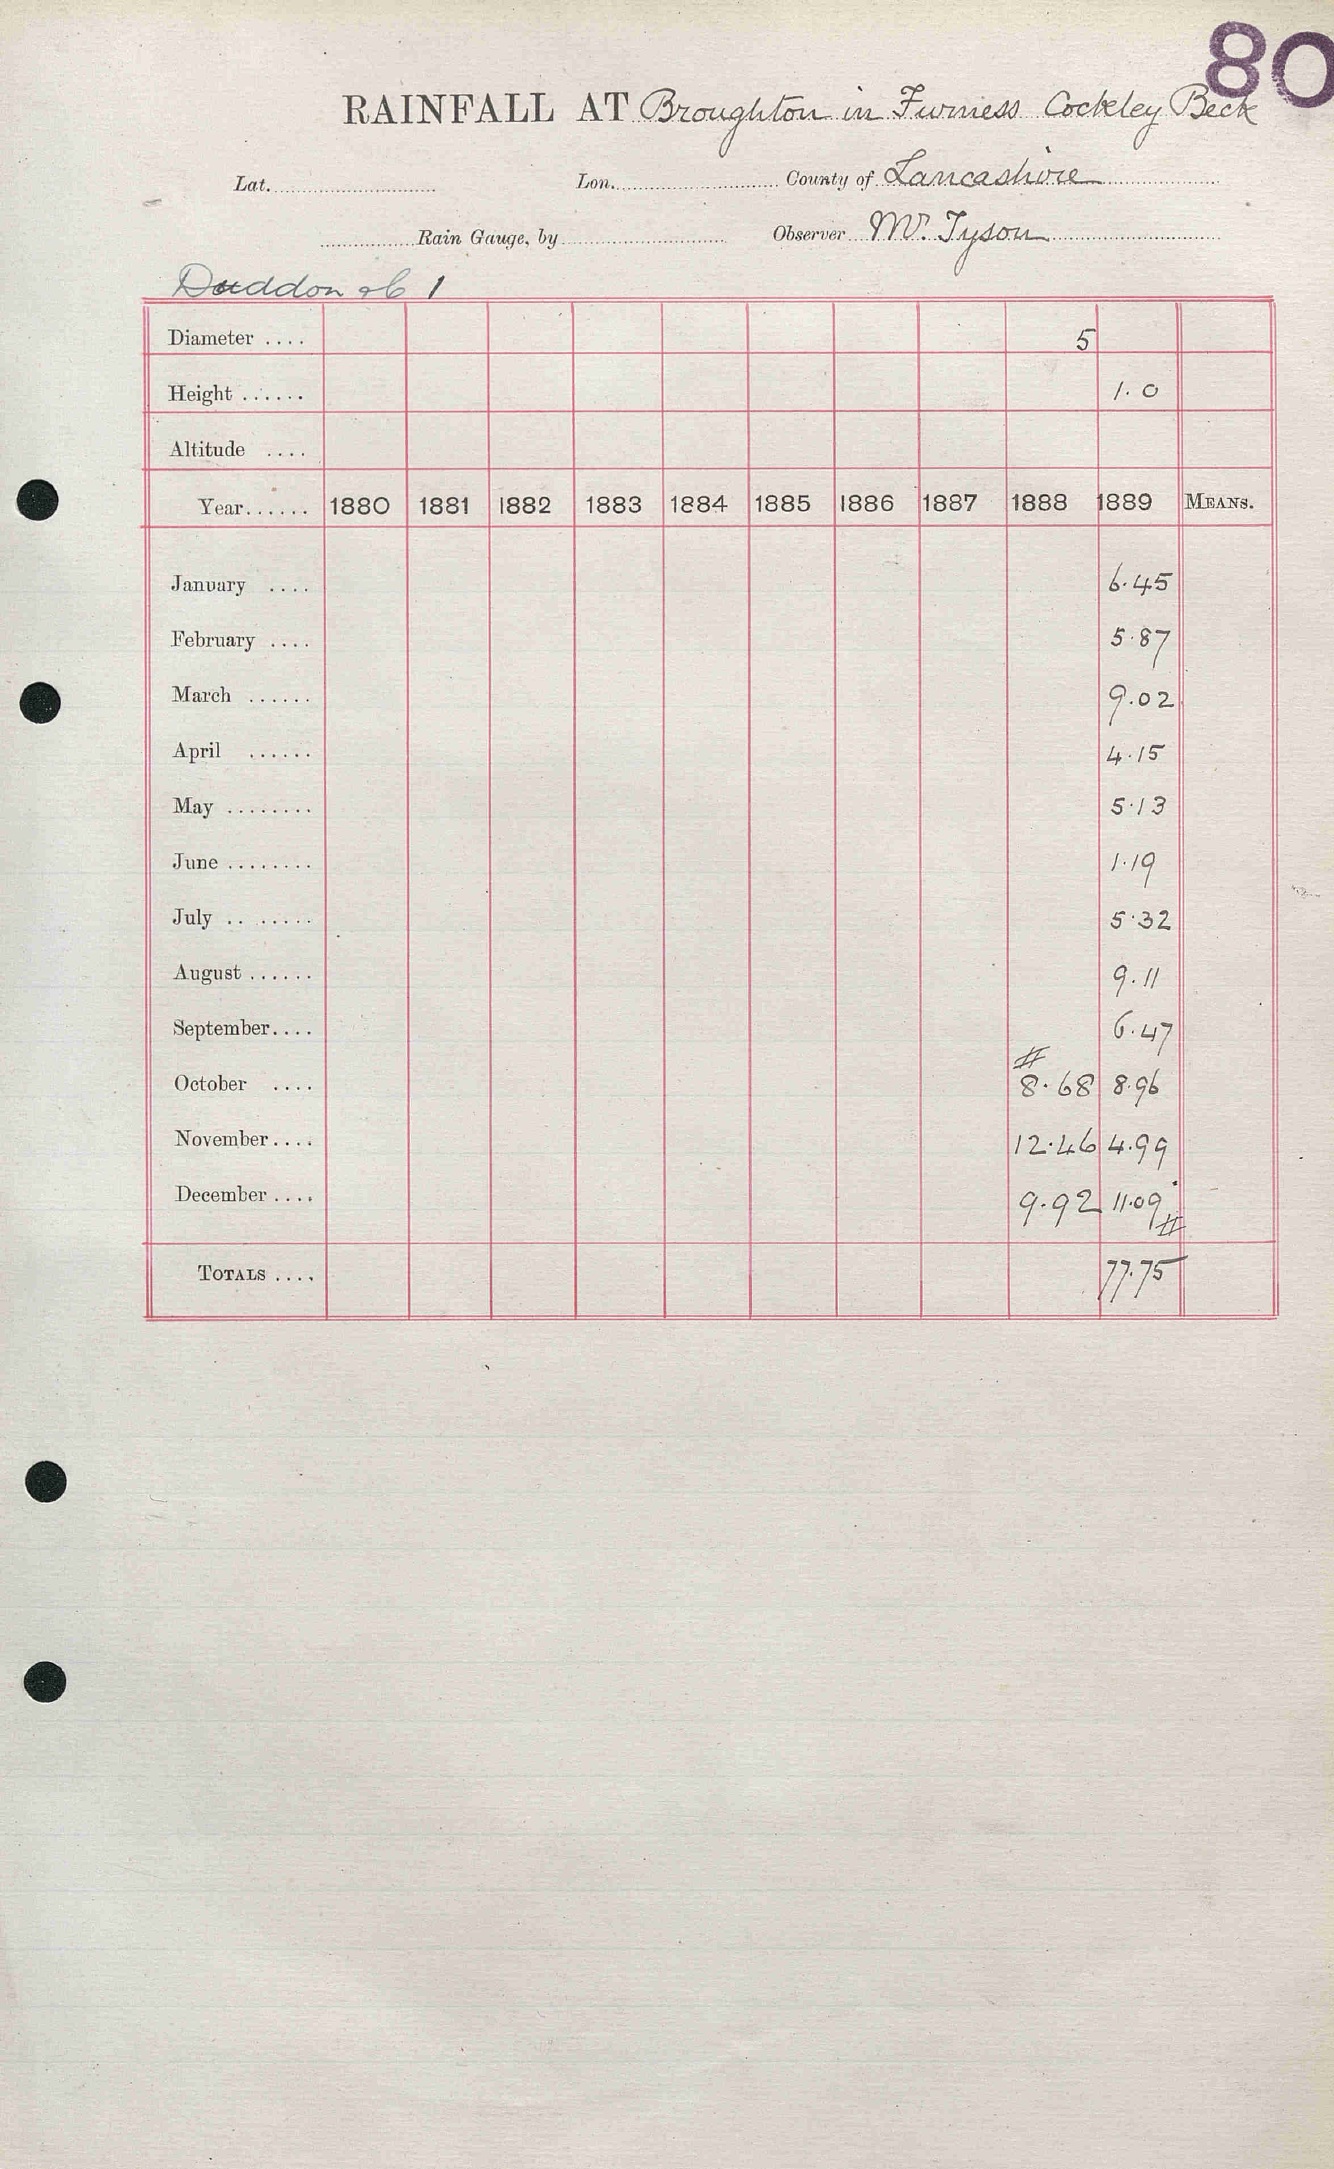 80
RAINFALL AT Broughton in Furness Cockley Beck
Lat. Lon. County of Lancashire
Rain Gauge, by Observer Mr. Tyson
Duddon 1
Diameter .... 5
Height ...... 1.0
Altitude ....
Year...... 1880 1881 1882 1883 1884 1885 1886 1887 1888 1889 MEANS.
January .... 6.45
February .... 5.87
March ...... 9.02
April ...... 4.15
May ........ 5.13
June ........ 1.19
July .. ...... 5.32
August ...... 9.11
September.... 6.47
#
October .... 8.68 8.96
November.... 12.46 4.99
December .... 9.92 11.09 #
TOTALS .... 77.75